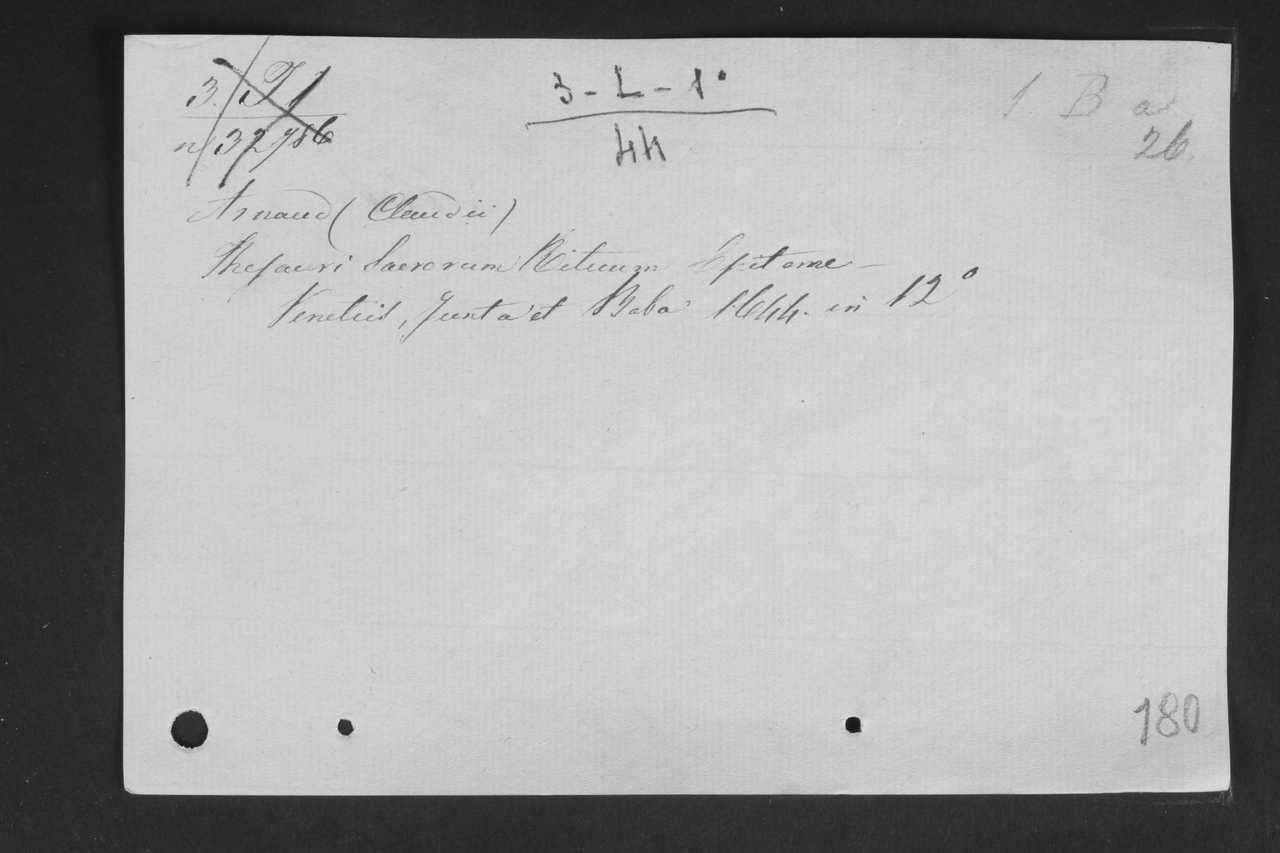 3. T 1
n 32786
3 - L - 1°
44
1 B a
26.
Arnaud ( Claudii )
Thesauri Sacrorum Rituum Epitome -
Venetiis, Junta et Baba 1644. in 12°
180